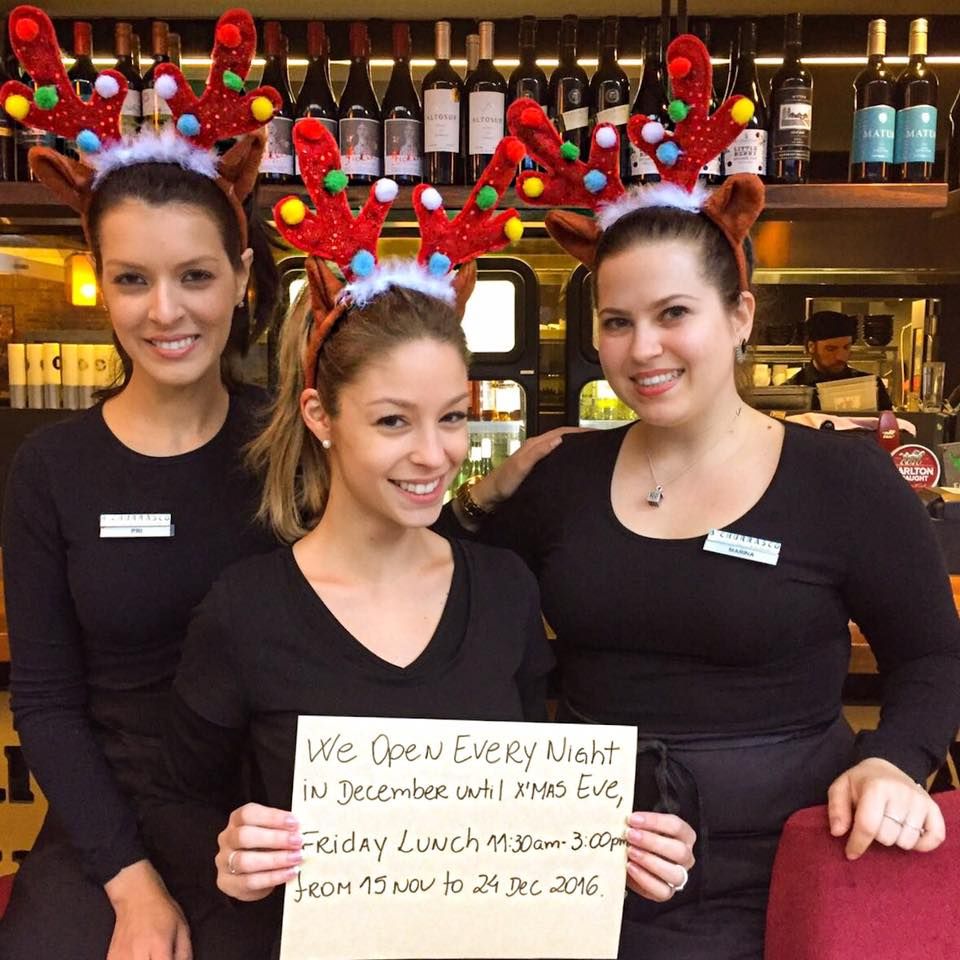 ALTOSUR
ALTOSUR
LITTLE
MATUA
MATUA
CHURRASCO
PRI
CHURRASCO
MARINA
ARLTON
AUGHT
We Open Every Night
in December until X'MAS Eve,
Friday Lunch 11:30am-3:00pm
from 15 Nov to 24 Dec 2016.